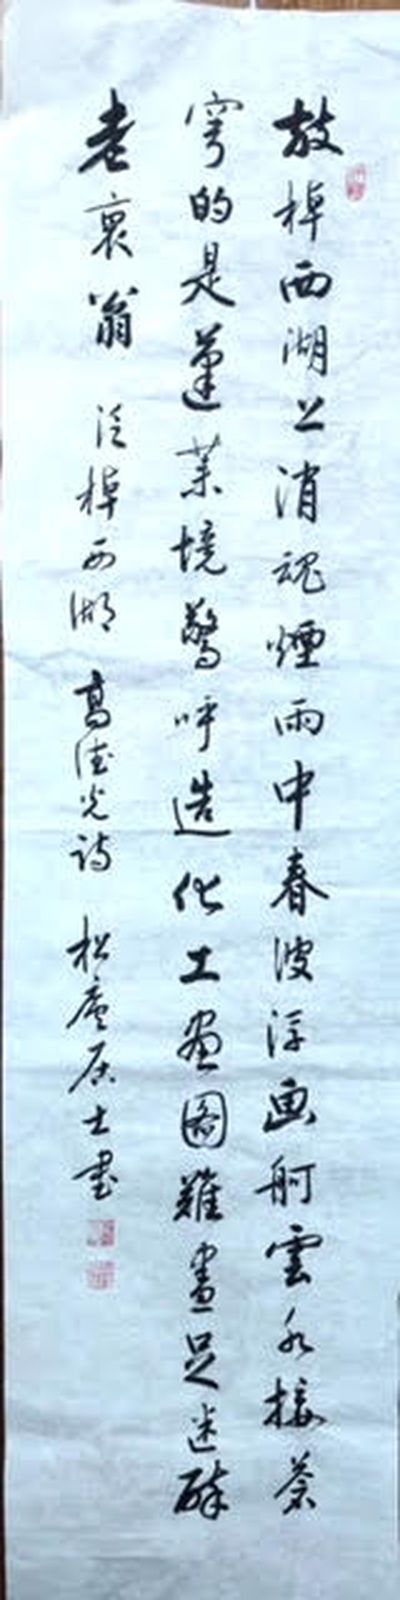 放棹西湖上消魂煙雨中春波浮画舸雲水接蒼
穹的是蓬莱境驚呼造化工畫圖難盡足迷醉
老衰翁 泛棹西湖 高德光詩 松廬居士書